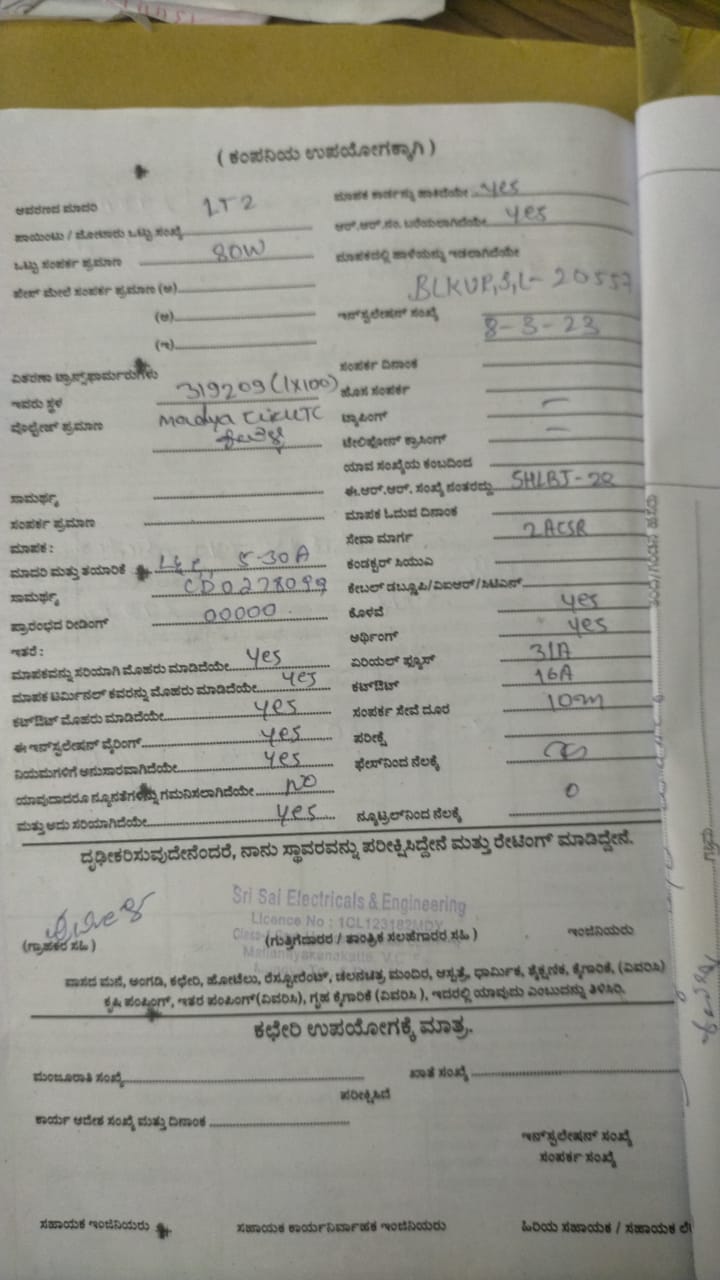 ( ಕಂಪನಿಯ ಉಪಯೋಗಕ್ಕಾಗಿ )
ಆವರಣದ ಮಾದರಿ LT2
ಮಾಪಕ ಕಾರ್ಡನ್ನು ಹಾಕಿದೆಯೇ yes
ಪಾಯಿಂಟು / ಮೋಟಾರು ಒಟ್ಟು ಸಂಖ್ಯೆ
ಆರ್.ಆರ್.ನಂ. ಬರೆಯಲಾಗಿದೆಯೇ yes
ಒಟ್ಟು ಸಂಪರ್ಕ ಪ್ರಮಾಣ 80W
ಮಾಪಕದಲ್ಲಿ ಹಾಳೆಯನ್ನು ಇಡಲಾಗಿದೆಯೇ
ಫೇಸ್ ಮೇಲೆ ಸಂಪರ್ಕ ಪ್ರಮಾಣ (ಅ)
BLKUP,S,L- 20557
(ಆ)
ಇನ್‌ಸ್ಟಲೇಷನ್ ಸಂಖ್ಯೆ
8-3-23
(ಇ)
ವಿತರಣಾ ಟ್ರಾನ್ಸ್‌ಫಾರ್ಮರುಗಳು
ಸಂಪರ್ಕ ದಿನಾಂಕ
ಇವರು ಸ್ಥಳ 319209 (1X100)
ಹೊಸ ಸಂಪರ್ಕ
ವೋಲ್ಟೇಜ್ ಪ್ರಮಾಣ
ಟ್ಯಾಪಿಂಗ್ –
ಟೆಲಿಫೋನ್ ಕ್ರಾಸಿಂಗ್ –
ಯಾವ ಸಂಖ್ಯೆಯ ಕಂಬದಿಂದ
ಸಾಮರ್ಥ್ಯ
ಈ.ಆರ್.ಆರ್. ಸಂಖ್ಯೆ ನಂತರದ್ದು SHLBJ-22
ಸಂಪರ್ಕ ಪ್ರಮಾಣ
ಮಾಪಕ ಓದುವ ದಿನಾಂಕ
ಮಾಪಕ :
ಸೇವಾ ಮಾರ್ಗ 2ACSR
ಮಾದರಿ ಮತ್ತು ತಯಾರಿಕೆ 5-30A
ಕಂಡಕ್ಟರ್ ಸಿಯುವಿ
ಸಾಮರ್ಥ್ಯ CD0278099
ಕೇಬಲ್ ಡಬ್ಲೂಪಿ/ವಿಐಆರ್/ಸಿಟಿಎಸ್
ಪ್ರಾರಂಭದ ರೀಡಿಂಗ್ 00000
ಕೊಳವೆ yes
ಇತರೆ :
ಅರ್ಥಿಂಗ್ yes
ಮಾಪಕವನ್ನು ಸರಿಯಾಗಿ ಮೊಹರು ಮಾಡಿದೆಯೇ yes
ಏರಿಯಲ್ ಫ್ಯೂಸ್ 31A
ಮಾಪಕ ಟರ್ಮಿನಲ್ ಕವರನ್ನು ಮೊಹರು ಮಾಡಿದೆಯೇ yes
ಕಟ್‌ಔಟ್ 16A
ಕಟ್‌ಔಟ್ ಮೊಹರು ಮಾಡಿದೆಯೇ yes
ಸಂಪರ್ಕ ಸೇವೆ ದೂರ 10m
ಈ ಇನ್‌ಸ್ಟಲೇಷನ್ ವೈರಿಂಗ್ yes
ಪರೀಕ್ಷೆ
ನಿಯಮಗಳಿಗೆ ಅನುಸಾರವಾಗಿದೆಯೇ yes
ಫೇಸ್‌ನಿಂದ ನೆಲಕ್ಕೆ
ಯಾವುದಾದರೂ ನ್ಯೂನತೆಗಳನ್ನು ಗಮನಿಸಲಾಗಿದೆಯೇ NO
ಮತ್ತು ಅದು ಸರಿಯಾಗಿದೆಯೇ yes
ನ್ಯೂಟ್ರಲ್‌ನಿಂದ ನೆಲಕ್ಕೆ 0
ದೃಢೀಕರಿಸುವುದೇನೆಂದರೆ, ನಾನು ಸ್ಥಾವರವನ್ನು ಪರೀಕ್ಷಿಸಿದ್ದೇನೆ ಮತ್ತು ರೇಟಿಂಗ್ ಮಾಡಿದ್ದೇನೆ.
Sri Sai Electricals & Engineering
Licence No : 1CL123182MDY
(ಗ್ರಾಹಕರ ಸಹಿ)
(ಗುತ್ತಿಗೆದಾರರ / ತಾಂತ್ರಿಕ ಸಲಹೆಗಾರರ ಸಹಿ)
ಇಂಜಿನಿಯರು
ವಾಸದ ಮನೆ, ಅಂಗಡಿ, ಕಛೇರಿ, ಹೋಟೆಲು, ರೆಸ್ಟೋರೆಂಟ್, ಚಲನಚಿತ್ರ ಮಂದಿರ, ಆಸ್ಪತ್ರೆ, ಧಾರ್ಮಿಕ, ಶೈಕ್ಷಣಿಕ, ಕೈಗಾರಿಕೆ, (ವಿವರಿಸಿ)
ಕೃಷಿ ಪಂಪಿಂಗ್, ಇತರ ಪಂಪಿಂಗ್(ವಿವರಿಸಿ), ಗೃಹ ಕೈಗಾರಿಕೆ (ವಿವರಿಸಿ ), ಇದರಲ್ಲಿ ಯಾವುದು ಎಂಬುದನ್ನು ತಿಳಿಸಿರಿ.
ಕಛೇರಿ ಉಪಯೋಗಕ್ಕೆ ಮಾತ್ರ.
ಮಂಜೂರಾತಿ ಸಂಖ್ಯೆ
ಖಾತೆ ಸಂಖ್ಯೆ
ಪರೀಕ್ಷಿಸಿದೆ
ಕಾರ್ಯ ಆದೇಶ ಸಂಖ್ಯೆ ಮತ್ತು ದಿನಾಂಕ
ಇನ್‌ಸ್ಟಲೇಷನ್ ಸಂಖ್ಯೆ
ಸಂಪರ್ಕ ಸಂಖ್ಯೆ
ಸಹಾಯಕ ಇಂಜಿನಿಯರು
ಸಹಾಯಕ ಕಾರ್ಯನಿರ್ವಾಹಕ ಇಂಜಿನಿಯರು
ಹಿರಿಯ ಸಹಾಯಕ / ಸಹಾಯಕ